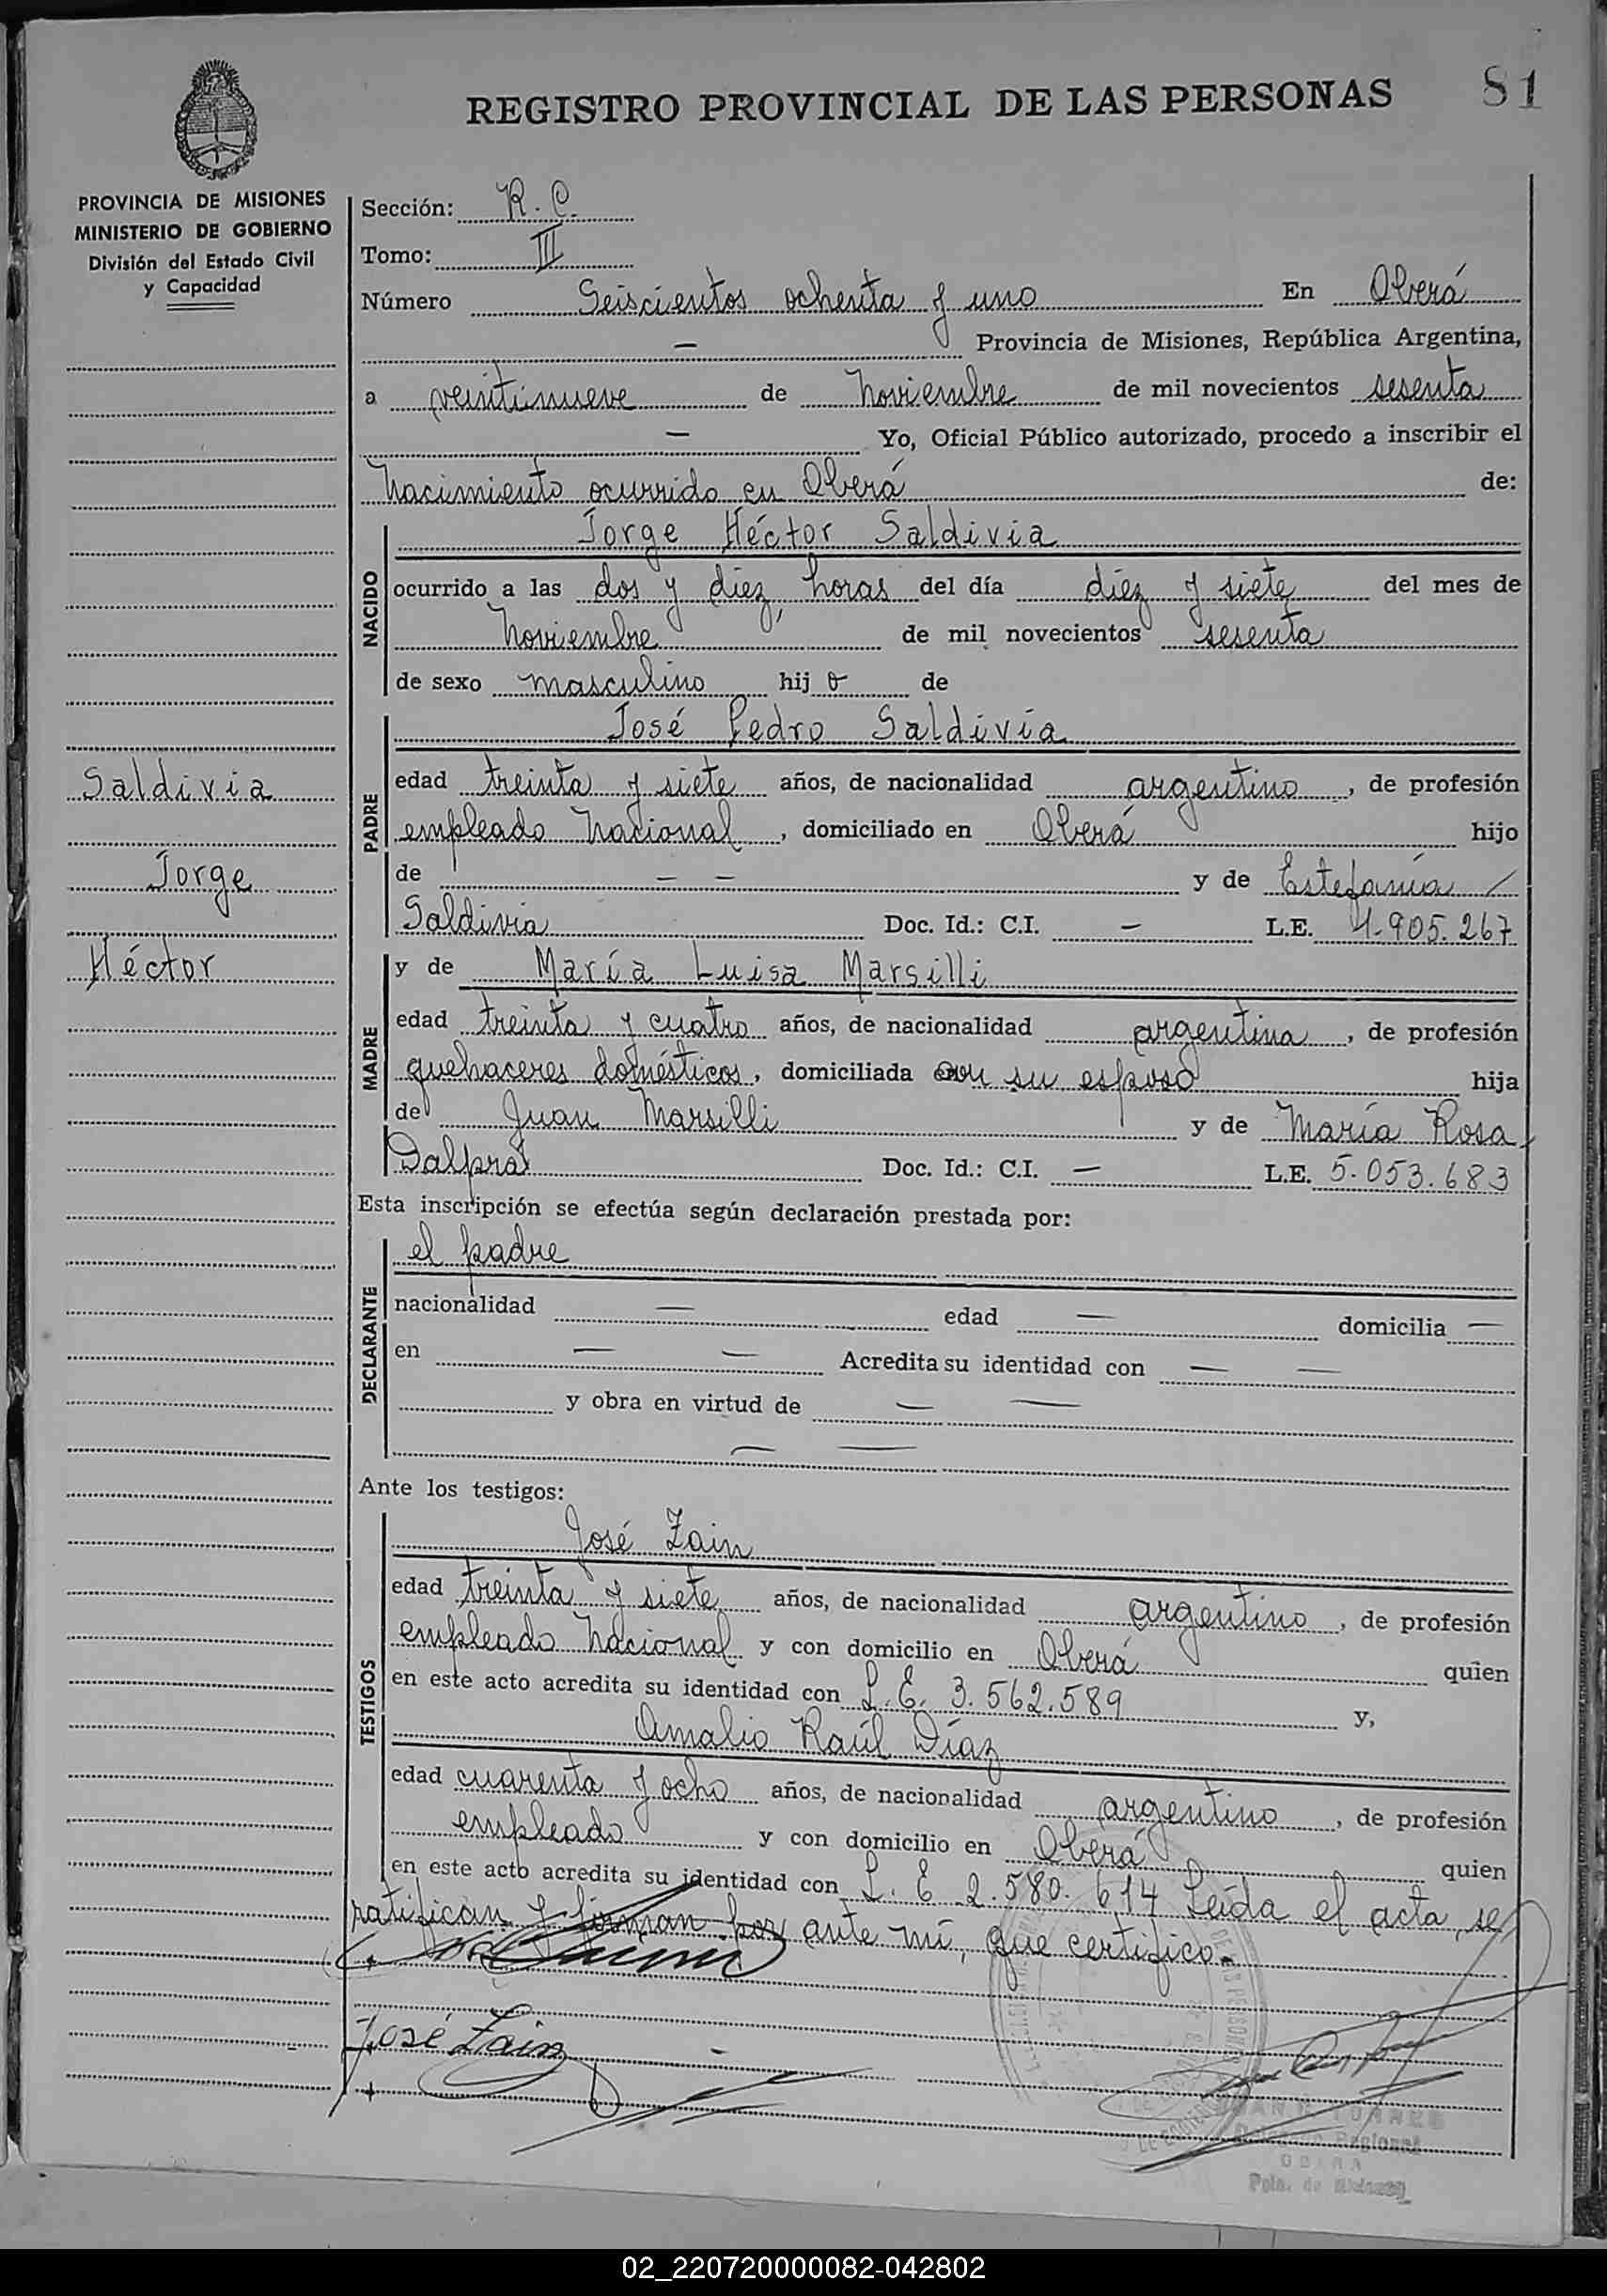 REGISTRO PROVINCIAL DE LAS PERSONAS 81
PROVINCIA DE MISIONES
MINISTERIO DE GOBIERNO
División del Estado Civil
y Capacidad
Sección: R. C.
Tomo: III
Número Seiscientos ochenta y uno En Oberá
— Provincia de Misiones, República Argentina,
a veintinueve de noviembre de mil novecientos sesenta
— Yo, Oficial Público autorizado, procedo a inscribir el
nacimiento ocurrido en Oberá de:
NACIDO
Jorge Héctor Saldivia
ocurrido a las dos y diez, horas del día diez y siete del mes de
noviembre de mil novecientos sesenta
de sexo masculino hij o de
PADRE
José Pedro Saldivia
edad treinta y siete años, de nacionalidad argentino, de profesión
empleado nacional, domiciliado en Oberá hijo
de — — y de Estefanía /
Saldivia Doc. Id.: C.I. — L.E. 4.905.267
Saldivia
Jorge
Héctor
MADRE
y de María Luisa Marsilli
edad treinta y cuatro años, de nacionalidad argentina, de profesión
quehaceres domésticos, domiciliada con su esposo hija
de Juan Marsilli y de María Rosa
Dalprá Doc. Id.: C.I. — L.E. 5.053.683
Esta inscripción se efectúa según declaración prestada por:
DECLARANTE
el padre
nacionalidad — edad — domicilia —
en — — Acredita su identidad con — —
y obra en virtud de — —
— —
Ante los testigos:
TESTIGOS
José Zain
edad treinta y siete años, de nacionalidad argentino, de profesión
empleado nacional y con domicilio en Oberá quien
en este acto acredita su identidad con L. E. 3.562.589 y,
Amalio Raúl Díaz
edad cuarenta y ocho años, de nacionalidad argentino, de profesión
empleado y con domicilio en Oberá quien
en este acto acredita su identidad con L. E 2.580.614 Leída el acta, se
ratifican y firman por ante mí, que certifico.
José Zain
TORRES
Delegado Regional
OBERA
Pcia. de Misiones
02_220720000082-042802